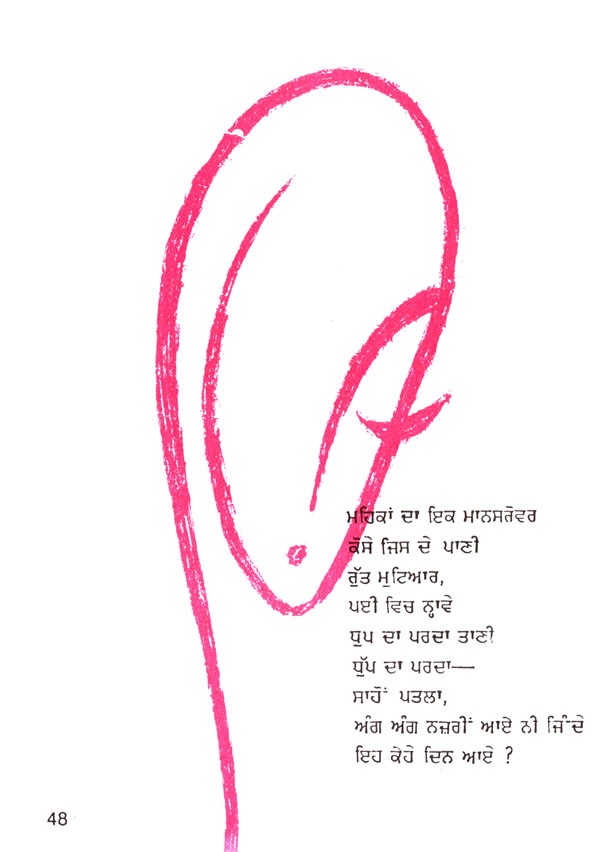 ਮਹਿਕਾਂ ਦਾ ਇਕ ਮਾਨਸਰੋਵਰ
ਕੋਸੇ ਜਿਸ ਦੇ ਪਾਣੀ
ਰੁੱਤ ਮੁਟਿਆਰ,
ਪਈ ਵਿਚ ਨ੍ਹਾਵੇ
ਧੁਪ ਦਾ ਪਰਦਾ ਤਾਣੀ
ਧੁੱਪ ਦਾ ਪਰਦਾ—
ਸਾਹੋਂ ਪਤਲਾ,
ਅੰਗ ਅੰਗ ਨਜ਼ਰੀਂ ਆਏ ਨੀ ਜਿੰਦੇ
ਇਹ ਕੇਹੇ ਦਿਨ ਆਏ ?
48